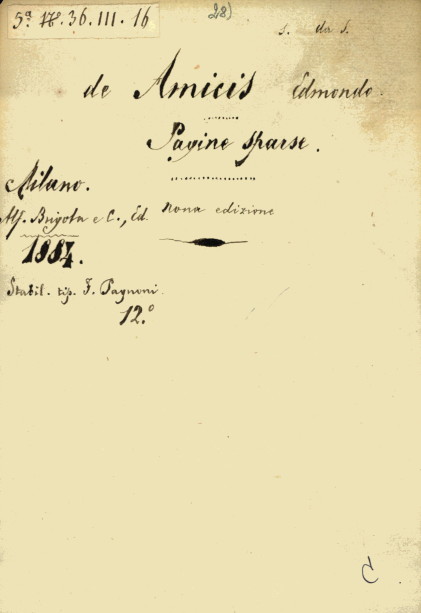 5ª 17. 36. III. 16
28)
s. da s.
de Amicis Edmondo.
Pagine sparse.
Milano.
Alf. Brigola e C., Ed. Nona edizione
1884.
Stabil. tip. F. Pagnoni.
12.º